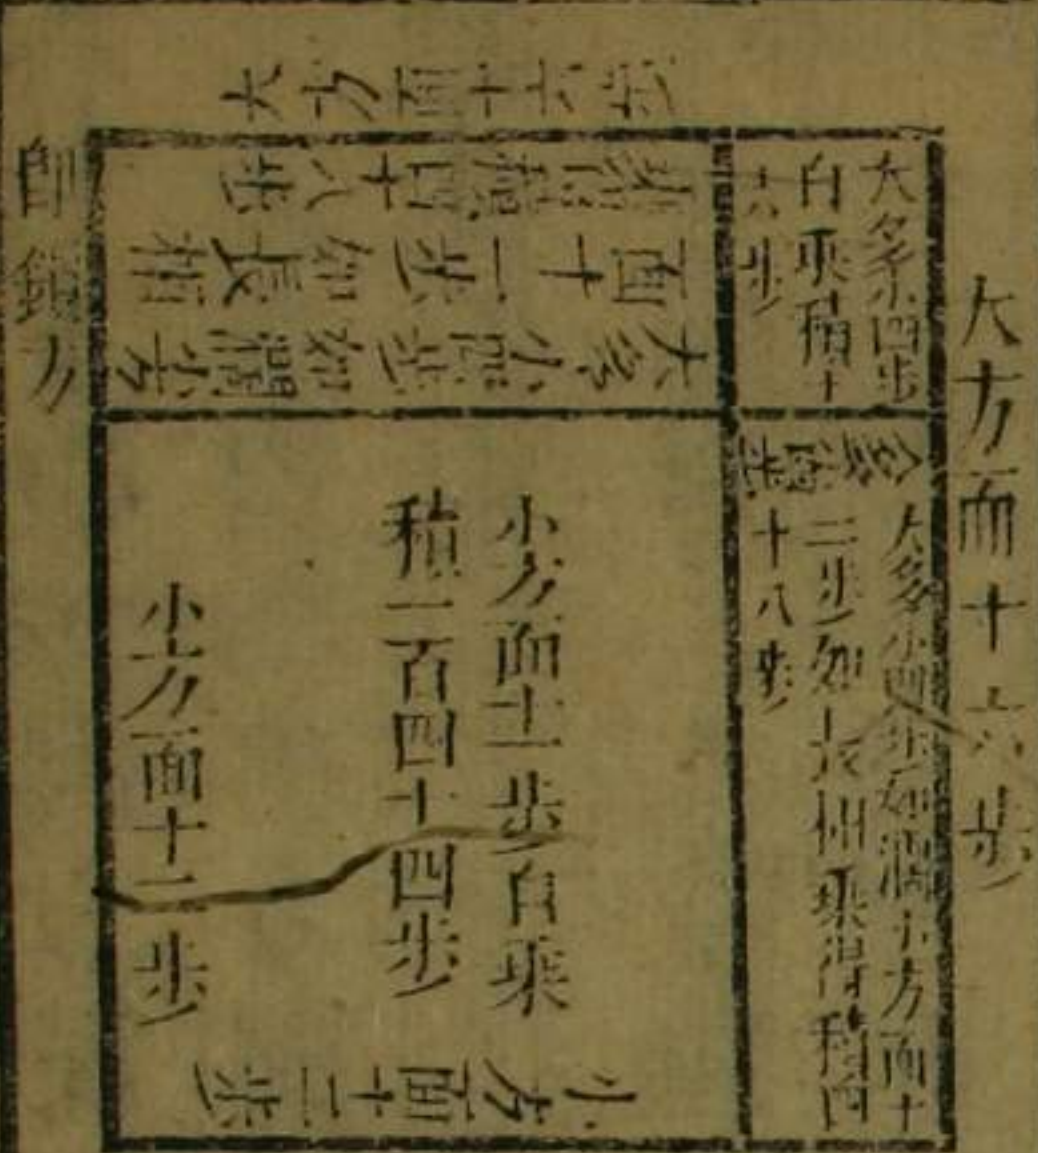 大方面十六步
大方面十六步
大多小四步
自乘積十
六步
多小四步
大多小四步如濶小方面十
二步如長相乘得積四
十八步
大多小四步如濶小方
面十二步如長相
乘得積四十八步
小方面十二步自乘
積一百四十四步
小方面十二步
小方面十二步